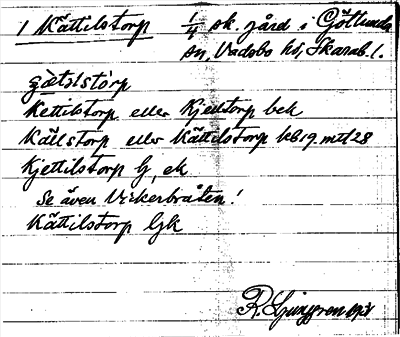 1 Kättilstorp 1/4 sk. gård i Götlunda
sn, Vadsbo hd, Skarab. l.
Kettilstorp eller Kjelltorp bek
Källstorp eller Kättilstorp hb 19. mtl 28
Kjettilstorp G, ek
Se även Vikerbråten!
Kättilstorp Gjk
R. Ljunggren